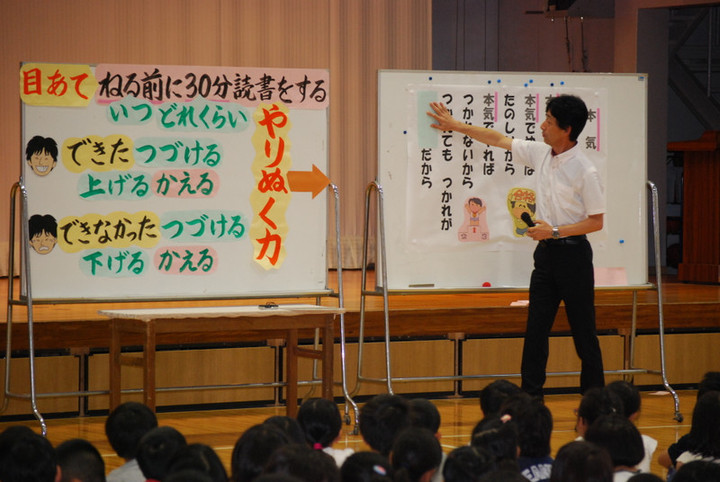 目あて ねる前に30分読書をする
いつ どれくらい
できた つづける
上げる かえる
できなかった つづける
下げる かえる
やりぬく力
本気
本気で
たのし
本気で
れば
つかれないから
つかれても つかれが
だから